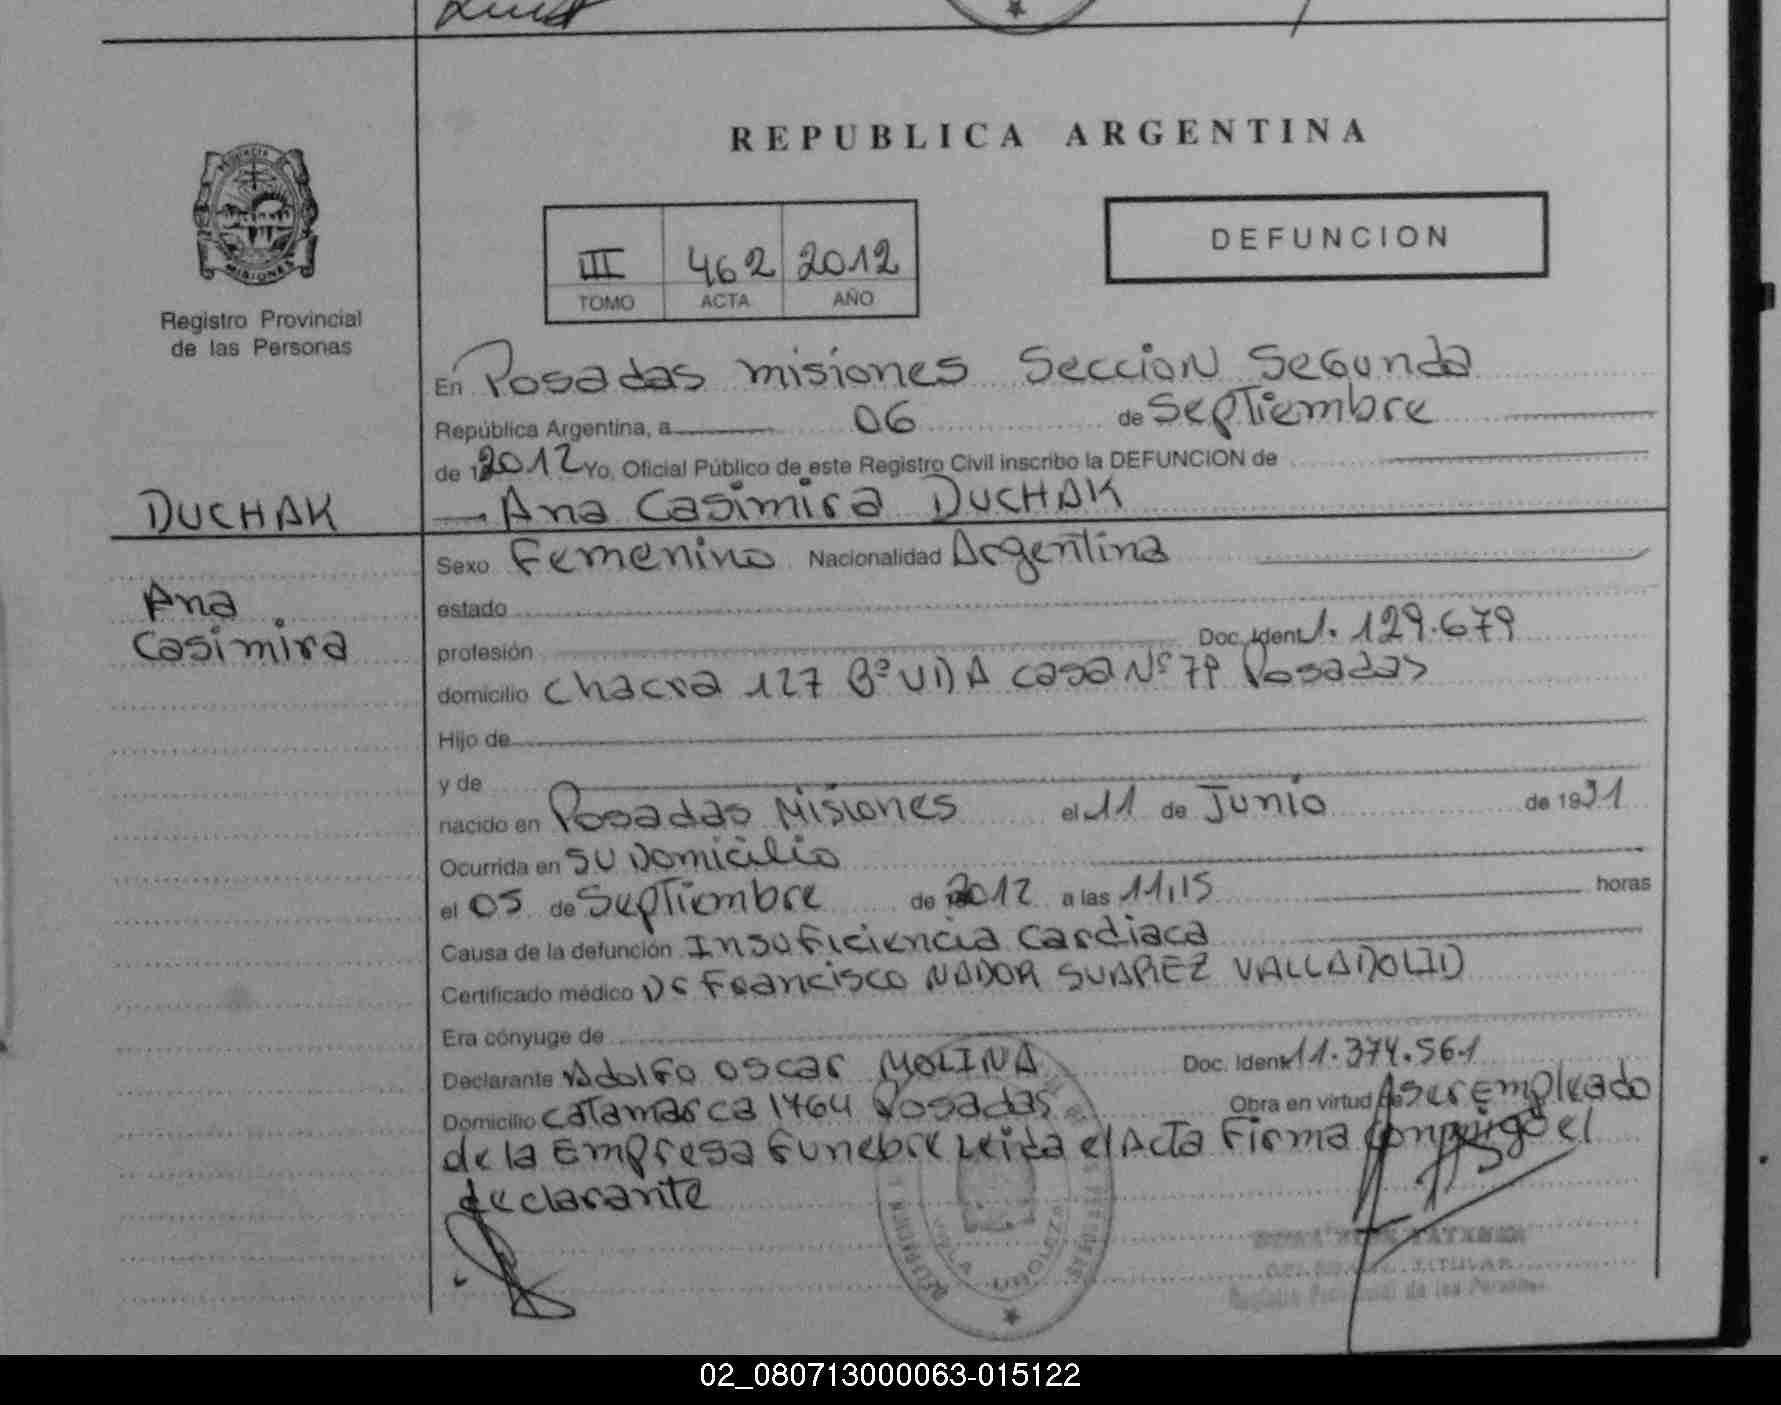 REPUBLICA ARGENTINA
DEFUNCION
III 462 2012
TOMO ACTA AÑO
PROVINCIA DE
MISIONES
Registro Provincial
de las Personas
En Posadas Misiones Seccion Segunda
República Argentina, a 06 de Septiembre
de 2012 Yo, Oficial Público de este Registro Civil inscribo la DEFUNCION de
DUCHAK
Ana Casimira DUCHAK
Ana
Casimira
Sexo Femenino Nacionalidad Argentina
estado
profesión Doc. Ident. 1.129.679
domicilio Chacra 127 Bº UDA casa Nº 79 Posadas
Hijo de
y de
nacido en Posadas Misiones el 11 de Junio de 1931
Ocurrida en su Domicilio
el 05 de Septiembre de 2012 a las 11,15 horas
Causa de la defunción Insuficiencia Cardiaca
Certificado médico Dr Francisco NADOR SUAREZ VALLADOLID
Era cónyuge de
Declarante Adolfo Oscar MOLINA Doc. Ident 11.374.561
Domicilio Catamarca 1764 Posadas Obra en virtud de ser empleado
de la Empresa Funebre Leida el Acta Firma conmigo el
declarante
TITULAR
Registro Provincial de las Personas
02_080713000063-015122